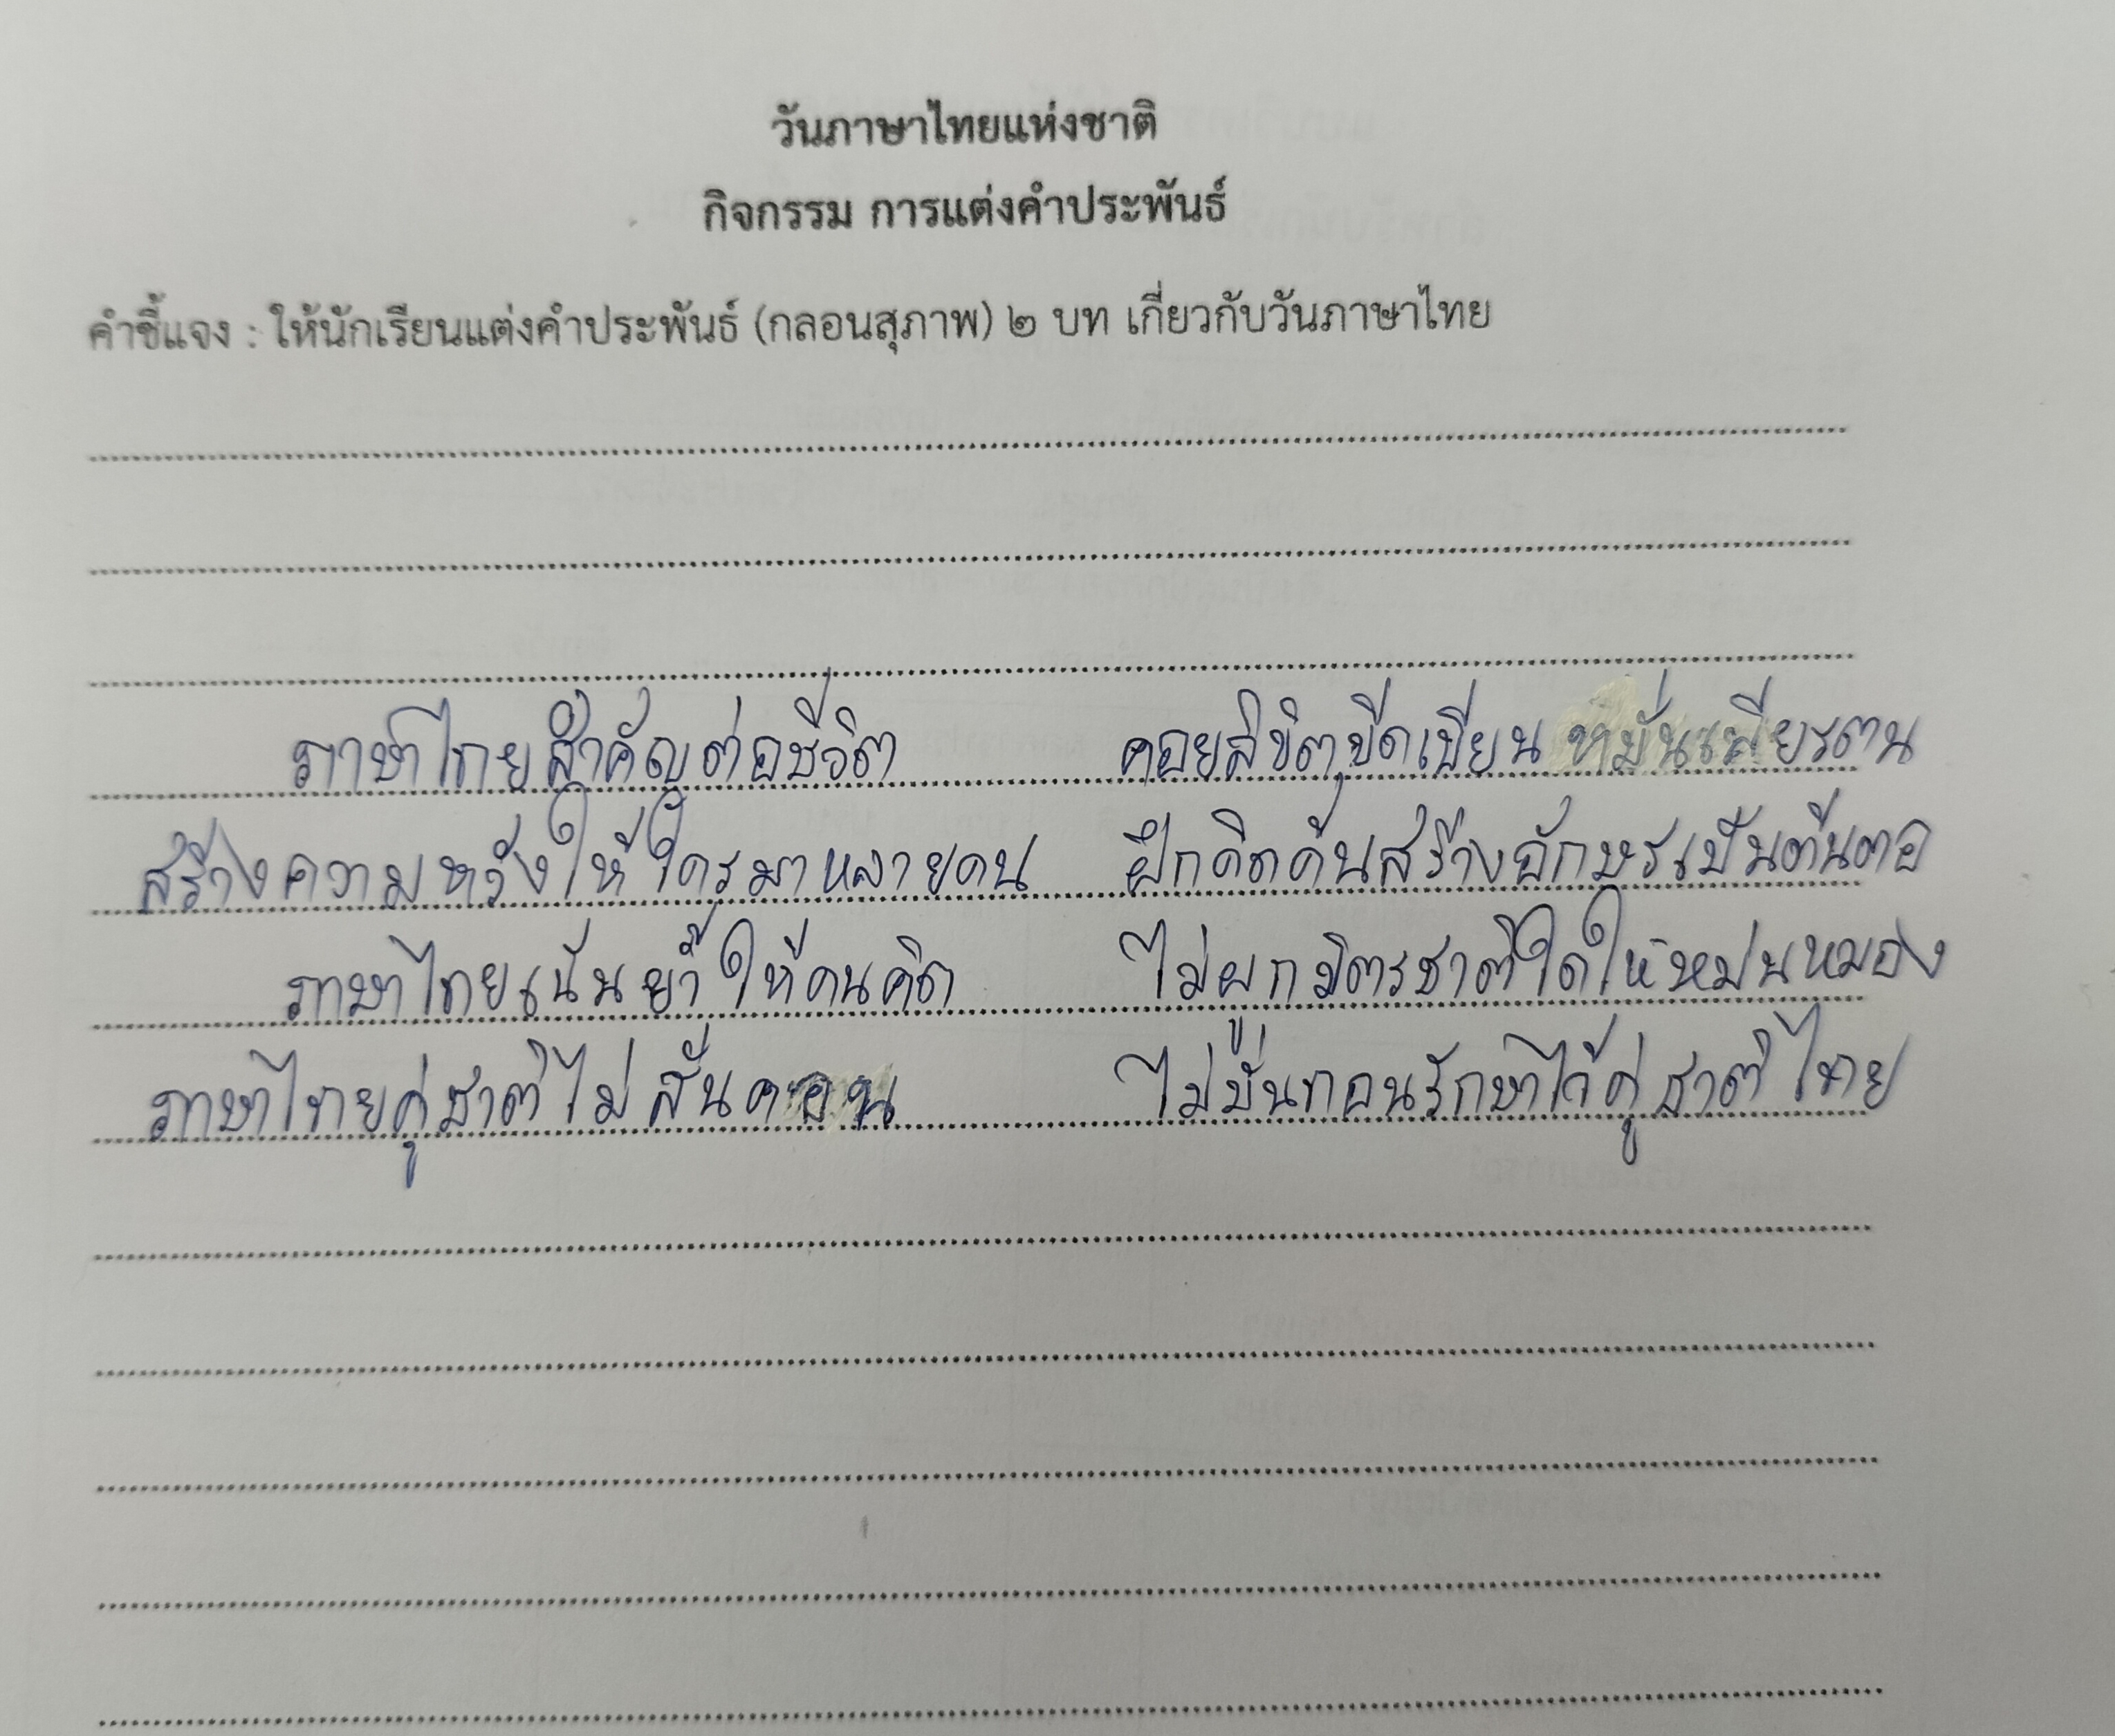 วันภาษาไทยแห่งชาติ
กิจกรรม การแต่งคำประพันธ์
คำชี้แจง : ให้นักเรียนแต่งคำประพันธ์ (กลอนสุภาพ) ๒ บท เกี่ยวกับวันภาษาไทย
ภาษาไทยสำคัญต่อชีวิต คอยลิขิตขีดเขียนหมั่นเพียรตน
สร้างความหวังให้ใครมาหลายคน ฝึกคิดค้นสร้างอักษรเป็นต้นตอ
ภาษาไทยเน้นย้ำให้คนคิด ไม่ผูกมิตรชาติใดให้หม่นหมอง
ภาษาไทยคู่ชาติไม่สั่นคลอน ไม่บั่นทอนรักษาไว้คู่ชาติไทย